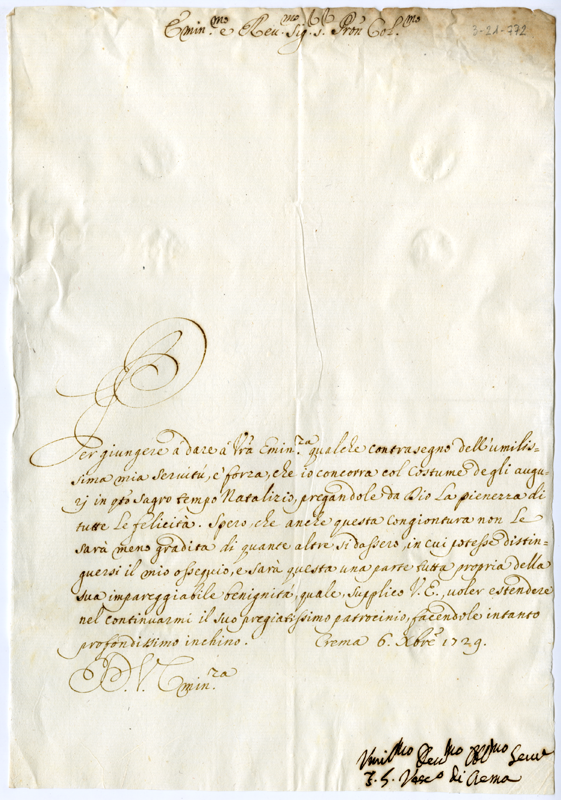 Emin.mo e Reu.mo Sig.r Pron Col.mo
3-21-772
Per giungere à dare à Vrã Emin.za qualche contrasegno dell'umilis-
sima mia servitù, è forza, che io concorra col Costume degli augu-
rj in pñte sagro tempo Natalizio, pregandole da Dio La pienezza di
tutte Le felicità. Spero, che anche questa congiontura non Le
sarà meno gradita di quante altre si dassero, in cui potesse distin-
guersi il mio ossequio, e sarà questa una parte tutta propria della
sua impareggiabile benignità, quale, supplico V.E., voler estendere
nel continuarmi il suo pregiatissimo patrocinio, facendole intanto
profondissimo inchino. Crema 6. Xbre 1729.
D. V. Emin.za
Vmil.mo Deu.mo Obl.mo Seru.e
F. L. Vesc.o di Crema